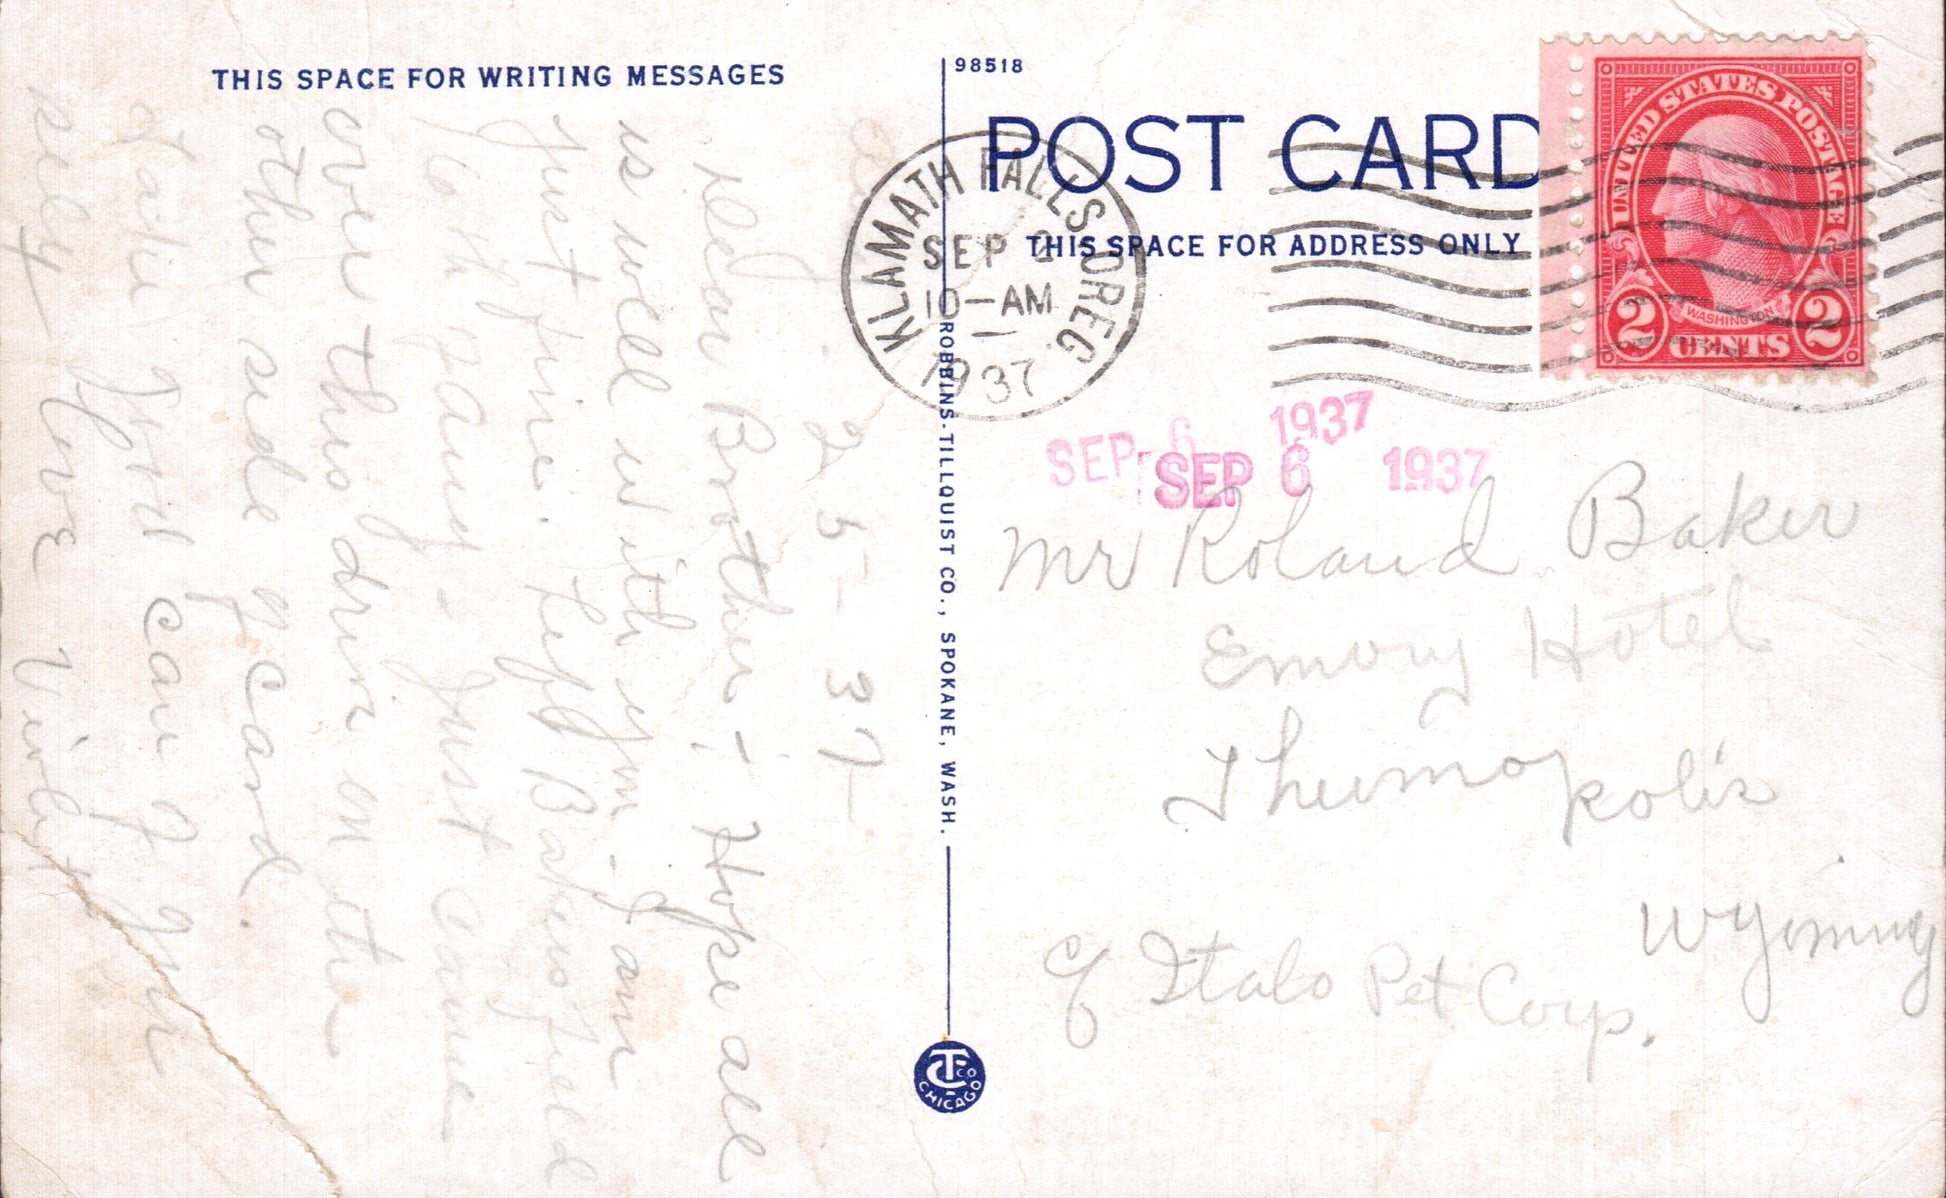 THIS SPACE FOR WRITING MESSAGES
98518
POST CARD
THIS SPACE FOR ADDRESS ONLY
UNITED STATES POSTAGE
WASHINGTON
2 CENTS 2
KLAMATH FALLS OREG.
SEP
10-AM
1937
SEP 6 1937
SEP 6 1937
ROBBINS-TILLQUIST CO., SPOKANE, WASH.
CT CO
CHICAGO
2 5 - 37
Dear Brother - Hope all
is well with you - I am
just fine. Left Bakersfield
Just came
over this drive on the
other side of card.
Take good care of your
self
Love Violet
Mr Roland Baker
Emory Hotel
Thermopolis
Wyoming
% Italo Pet Corp.